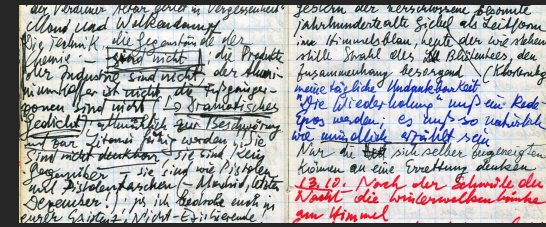 der Veroneser Altar gerät in Vergessenheit
Mond und Wolkendampf
Die Technik, die Gegenstände der
Chemie – sind nicht, die Produkte
der Industrie sind nicht, der Alumi-
niumkoffer ist nicht, die
sind nicht (→ Dramatisches
Gedicht) allmählich zur Beschwörung
und zur Litanei führig werden, Sie
sind nicht denkbar – Sie sind kein
Gegenüber – sie sind wie Pistolen
und Pistolentaschen (– Madrid, letzten
Dezember!), ja, ich bedrohe euch in
eurer Existenz, Nicht-Existierende!
gestern der verschossen besonnte
jahrhundertealte Giebel als Leitform
im Himmelsblau, heute der wie stehend
stille Strahl des Blutenden, den
Zusammenhang besorgend (
meine tägliche Undankbarkeit
"Die Wiederholung" muß ein Rede-
Epos werden; es muß so natürlich
wie mündlich erzählt sein
Nur die sich selber
können an eine Errettung denken
13.10. Nach der Schwüle der
Nacht die Winterwolkenbänke
am Himmel